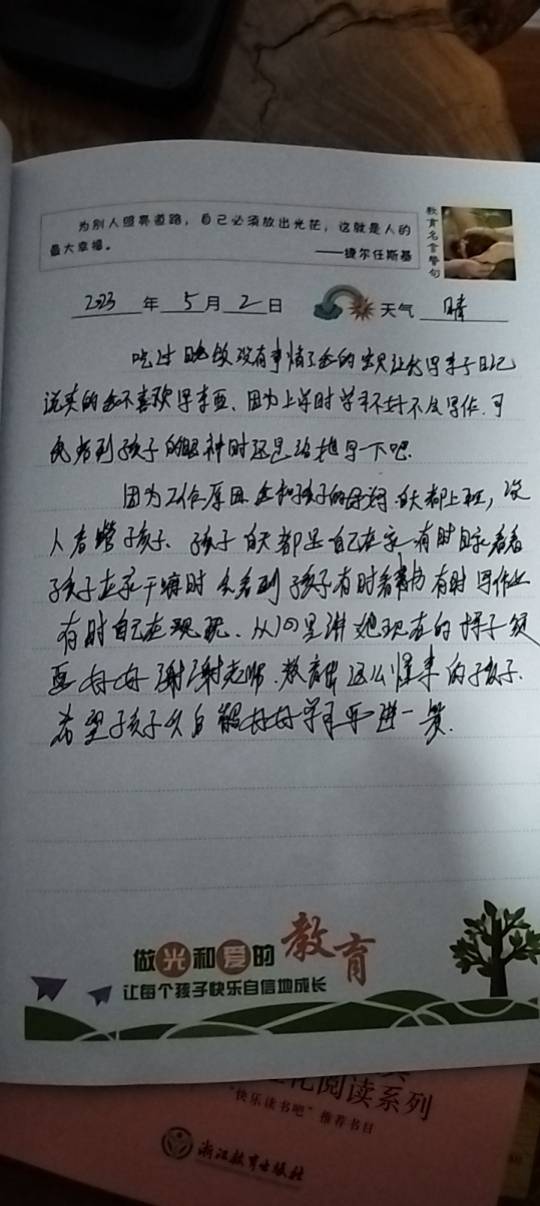 为别人照亮道路，自己必须放出光芒，这就是人的
最大幸福。 ——捷尔任斯基
教育名言警句
2023年5月2日 天气 晴
吃过晚饭没有事情了我的宝贝让我写亲子日记
说实的我不喜欢写东西、因为上学时学习不好不会写作.可
我看到孩子的眼神时还是给她写一下吧.
因为工作原因我和孩子的妈妈白天都上班，没
人看管孩子、孩子白天都是自己在家有时回家看看
孩子在家干嘛时会看到孩子有时看书有时写作业
有时自己在玩玩、从心里讲她现在的样子
要好好谢谢老师.教育出这么懂事的孩子.
希望孩子以后能好好学习再进一步.
做光和爱的教育
让每个孩子快乐自信地成长
阅读系列
“快乐读书吧”推荐书目
浙江教育出版社